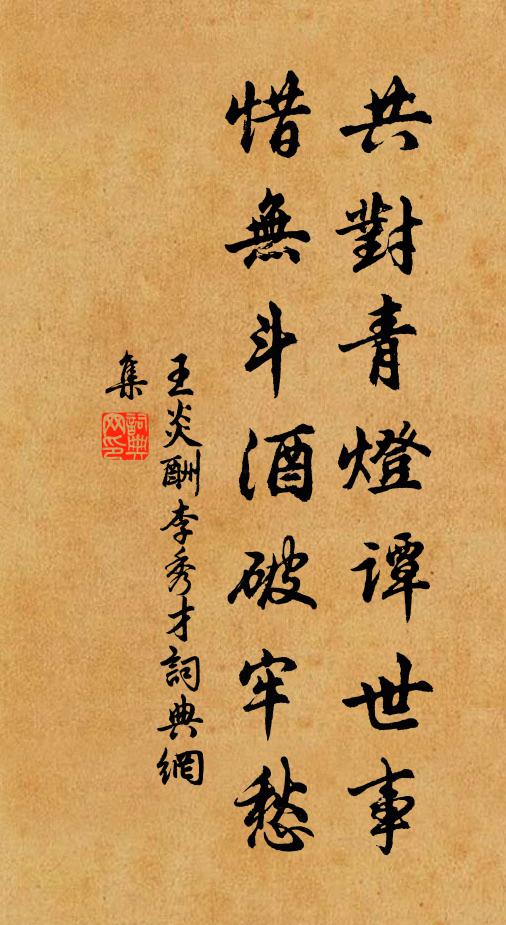 共對青燈譚世事
惜無斗酒破牢愁
王炎酬李秀才詞典網
集
詞典網印